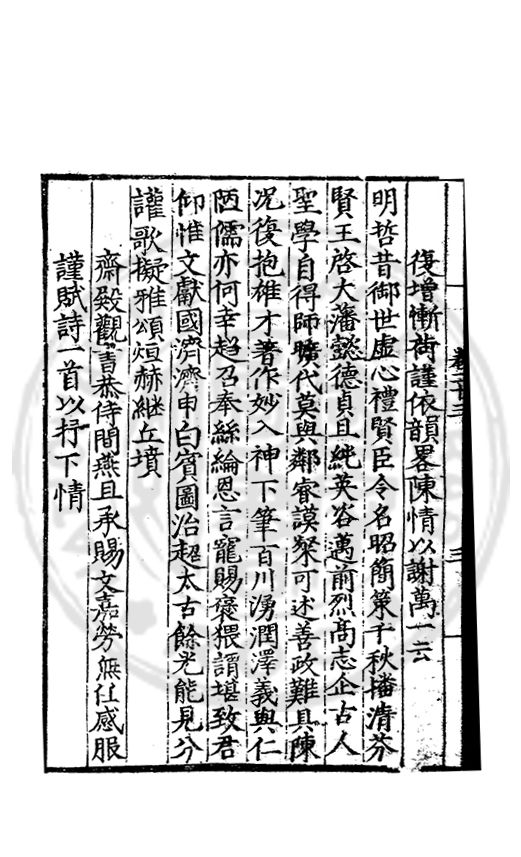 復增慚荷謹依韻畧陳情以謝萬一云
明哲昔御世虛心禮賢臣令名昭簡策千秋播清芬
賢王啓大藩懿德貞且純英咨邁前烈高志企古人
聖學自得師曠代莫與鄰睿謨粲可述善政難具陳
况復抱雄才著作妙入神下筆百川湧潤澤義與仁
陋儒亦何幸趨召奉絲綸恩言寵賜褒猥謂堪致君
仰惟文獻國濟濟申白賓圖治超太古餘光能見分
讙歌擬雅頌烜赫繼丘墳
齋殿觀書恭侍閒燕且承賜文嘉勞無任感服
謹賦詩一首以抒下情
卷之三
三